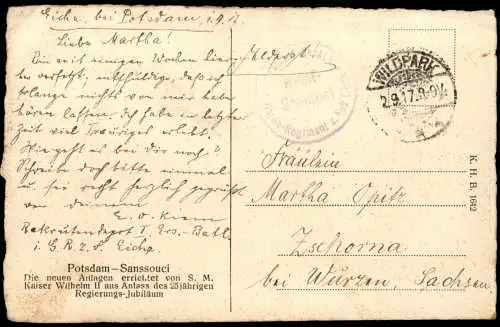 Eiche, bei Potsdam, 1.9.17
Liebe Martha!
Bin seit einigen Wochen hier-
her versetzt, entschuldige, daß ich
solange nichts von mir habe
hören lassen, ich habe in letzter
Zeit viel Trauriges erlebt.
Wie geht es bei dir noch?
Schreibe doch bitte einmal
u. sei recht herzlich gegrüßt
von deinem
Rekrutendepot I Ers.-Batl.
1. G. R. z. F. Eiche
Feldpost
Stempel
WILDPARK
2.9.17.8-9V.
Fräulein
Martha Opitz
Zschorna
bei Wurzen, Sachsen
K. H. B. 1642
Potsdam—Sanssouci
Die neuen Anlagen errichtet von S. M.
Kaiser Wilhelm II aus Anlass des 25jährigen
Regierungs-Jubiläum